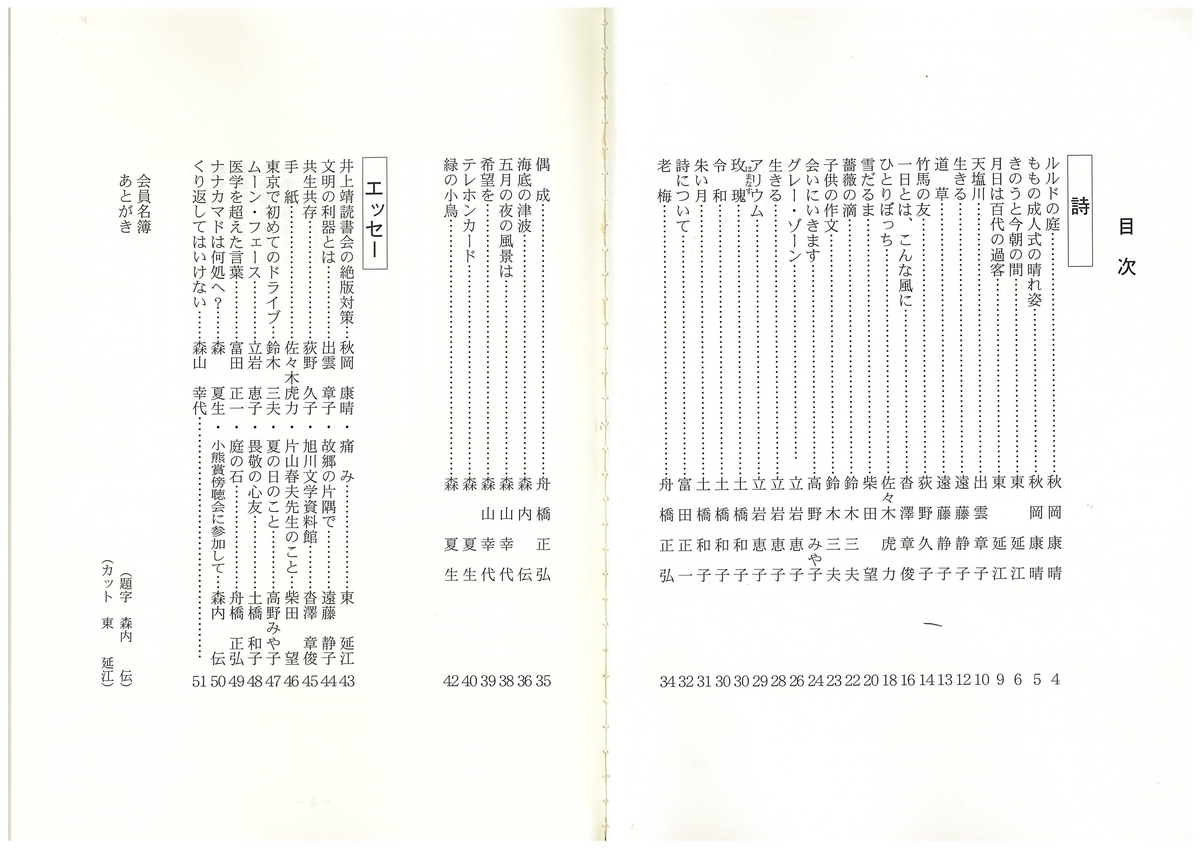 目次
詩
ルルドの庭……秋岡康晴 4
ももの成人式の晴れ姿……秋岡康晴 5
きのうと今朝の間……東延江 6
月日は百代の過客……東延江 9
天塩川……出雲章子 10
生きる……遠藤静子 12
道草……遠藤静子 13
竹馬の友……荻野久子 14
一日とは、こんな風に……沓澤章俊 16
ひとりぼっち……佐々木虎力 18
雪だるま……柴田望 20
薔薇の滴……鈴木三夫 22
子供の作文……鈴木三夫 23
会いにいきます……高野みや子 24
グレー・ゾーン……立岩恵子 26
生きる……立岩恵子 28
アリウム……立岩恵子 29
玫瑰(はまなす)……土橋和子 30
令和……土橋和子 30
朱い月……土橋和子 31
詩について……富田正一 32
老梅……舟橋正弘 34
偶成……舟橋正弘 35
海底の津波……森内伝 36
五月の夜の風景は……森山幸代 38
希望を……森山幸代 39
テレホンカード……森夏生 40
緑の小鳥……森夏生 42
エッセー
井上靖読書会の絶版対策…秋岡 康晴・痛み……東 延江 43
文明の利器とは……出雲 章子・故郷の片隅で……遠藤 静子 44
共生共存……荻野 久子・旭川文学資料館……沓澤 章俊 45
手紙……佐々木虎力・片山春夫先生のこと…柴田 望 46
東京で初めてのドライブ…鈴木 三夫・夏の日のこと……高野みや子 47
ムーン・フェース……立岩 恵子・畏敬の心友……土橋 和子 48
医学を超えた言葉……富田 正一・庭の石……舟橋 正弘 49
ナナカマドは何処へ?……森 夏生・小熊賞傍聴会に参加して…森内 伝 50
くり返してはいけない……森山 幸代…… 51
会員名簿
あとがき
(題字 森内 伝)
(カット 東 延江)